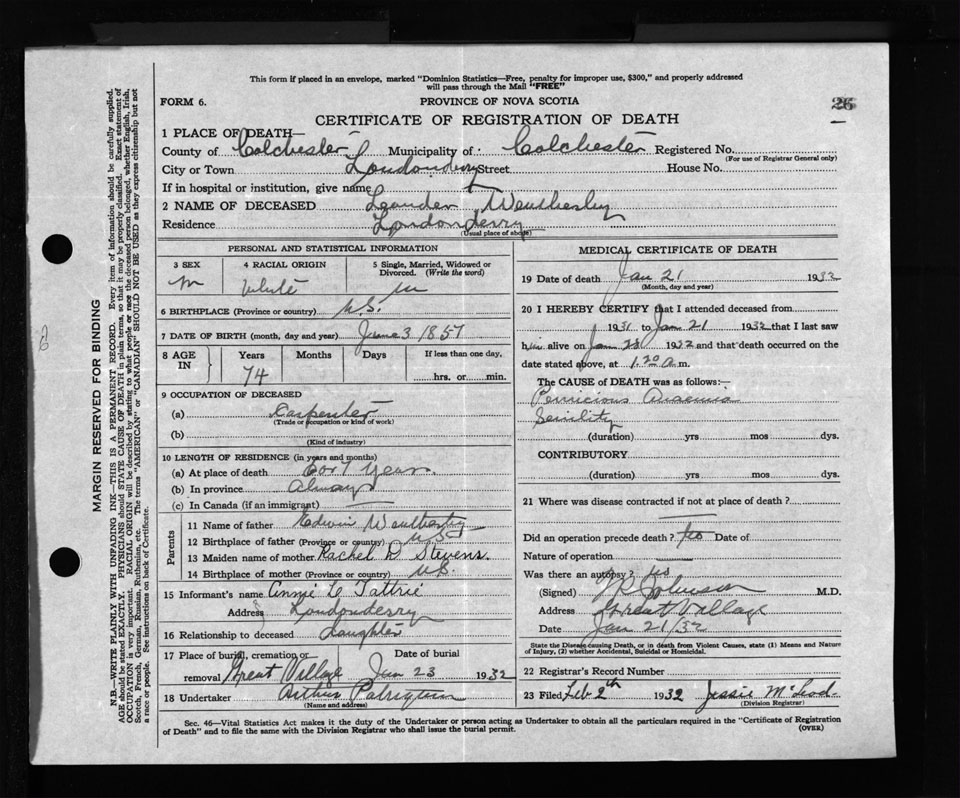 This form if placed in an envelope, marked "Dominion Statistics—Free, penalty for improper use, $300," and properly addressed
will pass through the Mail "FREE"
FORM 6.
PROVINCE OF NOVA SCOTIA
26
CERTIFICATE OF REGISTRATION OF DEATH
1 PLACE OF DEATH—
County of Colchester Municipality of Colchester Registered No.
(For use of Registrar General only)
City or Town Londonderry Street House No.
If in hospital or institution, give name
2 NAME OF DECEASED Leander Weatherby
Residence Londonderry
(Usual place of abode)
PERSONAL AND STATISTICAL INFORMATION
3 SEX 4 RACIAL ORIGIN 5 Single, Married, Widowed or
Divorced. (Write the word)
m White m
6 BIRTHPLACE (Province or country) N.S.
7 DATE OF BIRTH (month, day and year) June 3 1857
8 AGE IN Years Months Days If less than one day,
74 hrs. or min.
9 OCCUPATION OF DECEASED
(a) Carpenter
(Trade or occupation or kind of work)
(b)
(Kind of industry)
10 LENGTH OF RESIDENCE (in years and months)
(a) At place of death 6 or 7 Years
(b) In province Always
(c) In Canada (if an immigrant)
Parents
11 Name of father Edwin Weatherby
12 Birthplace of father (Province or country) N.S.
13 Maiden name of mother Rachel D Stevens.
14 Birthplace of mother (Province or country) N.S.
15 Informant's name Annie L Tattrie
Address Londonderry
16 Relationship to deceased daughter
17 Place of burial, cremation or removal Great Village Date of burial Jan 23 1932
18 Undertaker Arthur Patriquin
(Name and address)
MEDICAL CERTIFICATE OF DEATH
19 Date of death Jan 21 1932
(Month, day and year)
20 I HEREBY CERTIFY that I attended deceased from
1931 to Jan 21 1932 that I last saw
him alive on Jan 1932 and that death occurred on the
date stated above, at 1.30 a m.
The CAUSE of DEATH was as follows:—
Pernicious Anaemia
Senility
(duration) yrs mos dys.
CONTRIBUTORY
(duration) yrs mos dys.
21 Where was disease contracted if not at place of death?
Did an operation precede death? no Date of
Nature of operation
Was there an autopsy? no
(Signed) Johnson M.D.
Address Great Village
Date Jan 21/32
State the Disease causing Death, or in death from Violent Causes, state (1) Means and Nature
of Injury, (2) whether Accidental, Suicidal or Homicidal.
22 Registrar's Record Number
23 Filed Feb 2th 1932 Jessie McLeod
(Division Registrar)
Sec. 46—Vital Statistics Act makes it the duty of the Undertaker or person acting as Undertaker to obtain all the particulars required in the "Certificate of Registration
of Death" and to file the same with the Division Registrar who shall issue the burial permit.
(OVER)
MARGIN RESERVED FOR BINDING
N.B.—WRITE PLAINLY WITH UNFADING INK—THIS IS A PERMANENT RECORD. Every item of information should be carefully supplied.
AGE should be stated EXACTLY. PHYSICIANS should STATE CAUSE OF DEATH in plain terms, so that it may be properly classified. Exact statement of
OCCUPATION is very important. RACIAL ORIGIN will be described by stating to what people or race the deceased person belonged, whether English, Irish,
Scotch, French, German, Russian, Ruthenian, etc. The terms "AMERICAN" or "CANADIAN" SHOULD NOT BE USED as they express citizenship but not
a race or people. See instructions on back of Certificate.